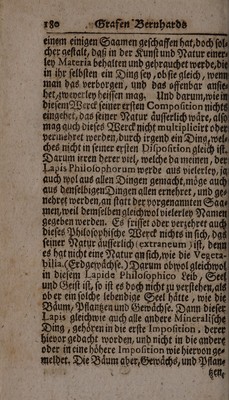 180 Grafen Bernhards
einem einigen Saamen geschaffen hat, doch sol-
cher gestalt, daß in der Kunst und Natur einer-
ley Materia behalten und gebraucht werde, die
in ihr selbsten ein Ding sey, ob sie gleich, wenn
man das verborgen, und das offenbar ansie-
het, zweyerley heissen mag. Und darum, wie in
diesem Werck seiner ersten Composition nichts
eingehet, das seiner Natur äusserlich wäre, also
mag auch dieses Werck nicht multiplicirt oder
vermehret werden, durch irgend ein Ding, wel-
ches nicht in seiner ersten Disposition gleich ist.
Darum irren derer viel, welche da meinen, der
Lapis Philosophorum werde aus vielerley, ja
auch wol aus allen Dingen gemacht, möge auch
aus denselbigen Dingen allen ernehret, und ge-
nehret werden, an statt der vorgenannten Saa-
men, weil demselben gleichwol vielerley Namen
gegeben werden. Es frisset oder verzehrt auch
dieses Philosophische Werck nichts in sich, das
seiner Natur äusserlich (extraneum) ist, denn
es hat nicht eine Natur an sich, wie die Vegeta-
bilia. (Erdgewächse.) Darum obwol gleichwol
in diesem Lapide Philosophico Leib, Seel
und Geist ist, so ist es doch nicht zu verstehen, als
ob er ein solche lebendige Seel hätte, wie die
Bäum, Pflantzen und Gewächse. Dann dieser
Lapis gleichwie auch alle andere Mineralische
Ding, gehören in die erste Imposition, derer
hievor gedacht worden, und nicht in die andere
oder in eine höhere Imposition wie hiervon ge-
meldet. Die Bäum aber, Gewächs, und Pflan-
tzen,